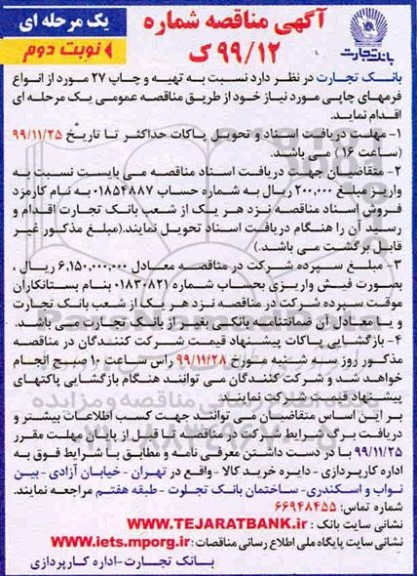 آگهی مناقصه شماره
۹۹/۱۲ ک
یک مرحله ای
نوبت دوم
بانک تجارت
بانک تجارت در نظر دارد نسبت به تهیه و چاپ ۲۷ مورد از انواع
فرمهای چاپی مورد نیاز خود از طریق مناقصه عمومی یک مرحله ای
اقدام نماید.
۱- مهلت دریافت اسناد و تحویل پاکات حداکثر تا تاریخ ۹۹/۱۱/۲۵
(ساعت ۱۶) می باشد.
۲- متقاضیان جهت دریافت اسناد مناقصه می بایست نسبت به
واریز مبلغ ۲۰۰,۰۰۰ ریال به شماره حساب ۰۱۸۵۴۸۸۷ به نام کارمزد
فروش اسناد مناقصه نزد هر یک از شعب بانک تجارت اقدام و
رسید آن را هنگام دریافت اسناد تحویل نمایند.(مبلغ مذکور غیر
قابل برگشت می باشد.)
۳- مبلغ سپرده شرکت در مناقصه معادل ۶,۱۵۰,۰۰۰,۰۰۰ ریال ،
بصورت فیش واریزی بحساب شماره ۰۱۸۳۰۸۲۱ بنام بستانکاران
موقت سپرده شرکت در مناقصه نزد هر یک از شعب بانک تجارت
و یا معادل آن ضمانتنامه بانکی بغیر از بانک تجارت می باشد.
۴- بازگشایی پاکات پیشنهاد قیمت شرکت کنندگان در مناقصه
مذکور روز سه شنبه مورخ ۹۹/۱۱/۲۸ راس ساعت ۱۰ صبح انجام
خواهد شد و شرکت کنندگان می توانند هنگام بازگشایی پاکتهای
پیشنهاد قیمت شرکت نمایند.
بر این اساس متقاضیان می توانند جهت کسب اطلاعات بیشتر و
دریافت برگ شرایط شرکت در مناقصه تا قبل از پایان مهلت مقرر
۹۹/۱۱/۲۵ با در دست داشتن معرفی نامه و مطابق با شرایط فوق به
اداره کارپردازی - دایره خرید کالا - واقع در تهران - خیابان آزادی - بین
نواب و اسکندری - ساختمان بانک تجارت - طبقه هفتم مراجعه نمایند.
شماره تماس: ۶۶۹۴۸۴۵۵
نشانی سایت بانک : WWW.TEJARATBANK.ir
نشانی سایت پایگاه ملی اطلاع رسانی مناقصات: www.iets.mporg.ir
بانک تجارت-اداره کارپردازی